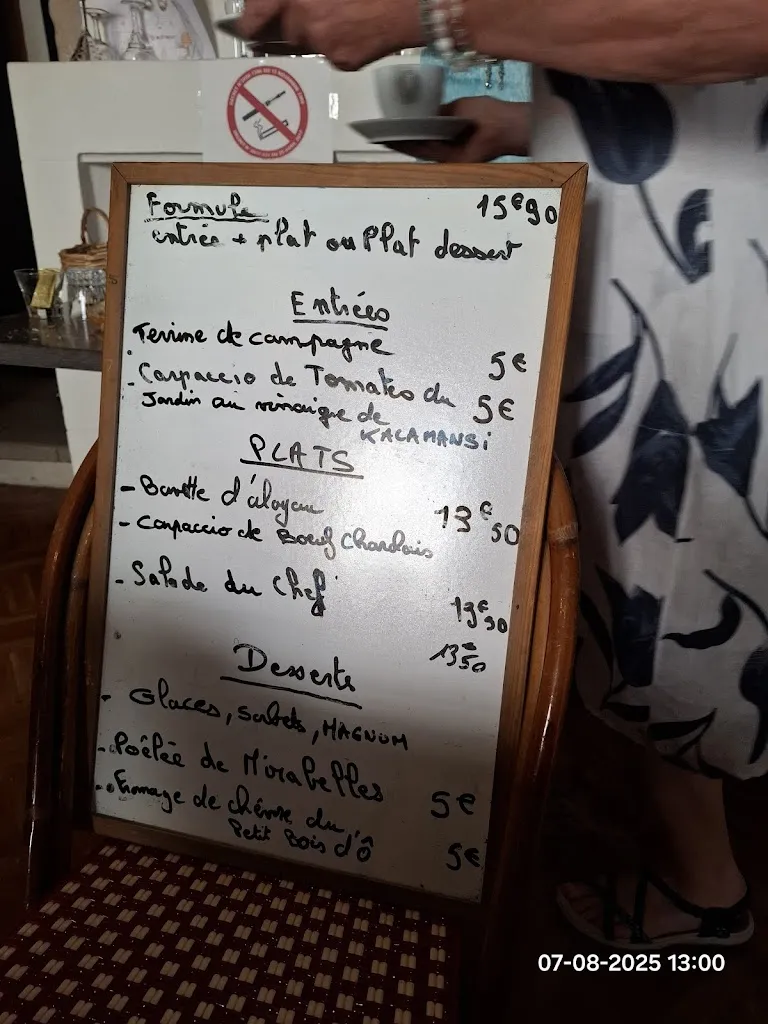 Formule 15€90
entrée + plat ou Plat dessert
Entrées
Terrine de campagne 5€
- Carpaccio de Tomates du 5€
Jardin au vinaigre de
KALAMANSi
PLATS
- Bavette d'aloyau 13€50
- Carpaccio de Boeuf Charolais
- Salade du Chef 13€90
13€50
Desserts
- Glaces, Sorbets, MAGNUM
- Poêlée de Mirabelles 5€
- Fromage de chèvre du
Petit Bois d'Ô 5€
07-08-2025 13:00